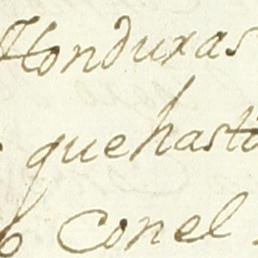 Honduras
que hasta
Conel